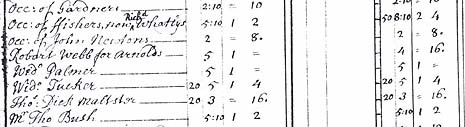 Occ: of Gardners 2:10 = 10
Occ: of Fishers, now Rich'd Whatlys 5:10 1 2 50 8:10 2 4
Occ: of John Newtons 2 = 8. 2 = 8.
Robert Webb for Arnolds 5 1 = 4 = 16.
Wed: Palmer 5 1 = 5 1 =
Wid: Tucker 20 5 1 4 20 5 1 4
Tho: Dick maltster 20 3 = 16. 20 3 = 16.
Mr Tho Bush 5:10 1 2 5:10 1 2